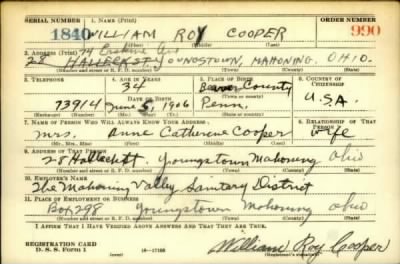 SERIAL NUMBER 1. NAME (Print) ORDER NUMBER
1840 WILLIAM ROY COOPER 990
(First) (Middle) (Last)
2. ADDRESS (Print) 74 Erskine Ave
28 HALLECK ST. YOUNGSTOWN, MAHONING, OHIO.
(Number and street or R. F. D. number) (Town) (County) (State)
3. TELEPHONE 4. AGE IN YEARS 5. PLACE OF BIRTH 6. COUNTRY OF CITIZENSHIP
34 Beaver County
DATE OF BIRTH (Town or county)
73914 June 5, 1906 Penn. U.S.A.
(Exchange) (Number) (Mo.) (Day) (Yr.) (State or country)
7. NAME OF PERSON WHO WILL ALWAYS KNOW YOUR ADDRESS 8. RELATIONSHIP OF THAT PERSON
Mrs. Anne Catherine Cooper wife
(Mr., Mrs., Miss) (First) (Middle) (Last)
9. ADDRESS OF THAT PERSON
28 Halleck St. Youngstown Mahoning Ohio
(Number and street or R. F. D. number) (Town) (County) (State)
10. EMPLOYER'S NAME
The Mahoning Valley Sanitary District
11. PLACE OF EMPLOYMENT OR BUSINESS
Box 298 Youngstown Mahoning Ohio
(Number and street or R. F. D. number) (Town) (County) (State)
I AFFIRM THAT I HAVE VERIFIED ABOVE ANSWERS AND THAT THEY ARE TRUE.
REGISTRATION CARD
D. S. S. Form 1 (over) 16—17105 William Roy Cooper
(Registrant's signature)